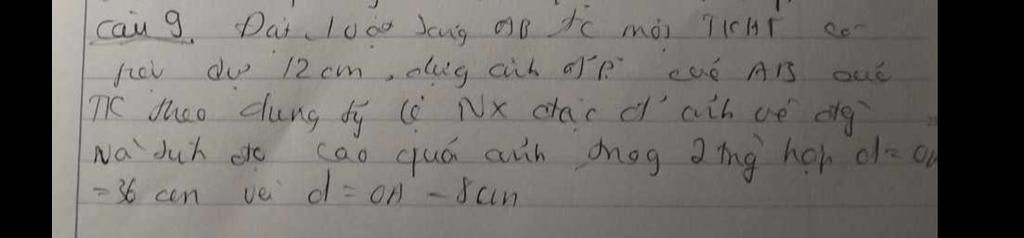 Câu 9. Đặt 1 vật sáng AB trước một TKHT có
tiêu cự 12 cm, dựng ảnh A'B' của AB qua
TK theo đúng tỷ lệ NX đặc đ' ảnh về
Và tính độ cao của ảnh trong 2 trg hợp d = OA
= 36 cm và d = OA = 8cm